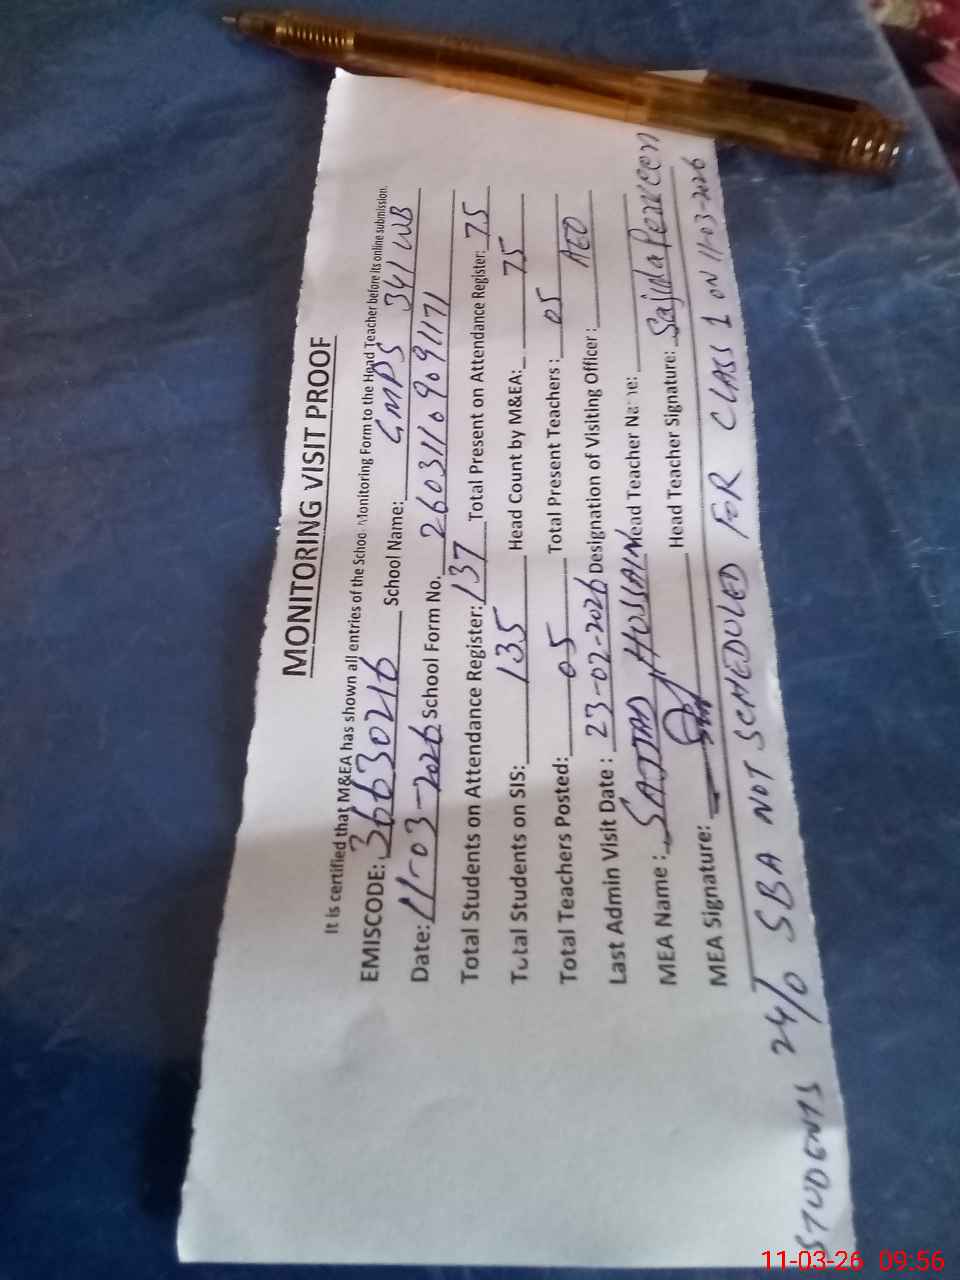 MONITORING VISIT PROOF
It is certified that M&EA has shown all entries of the School Monitoring Form to the Head Teacher before its online submission.
EMISCODE: 36630216 School Name: GMPS 341 WB
Date: 11-03-2026 School Form No. 26031109091171
Total Students on Attendance Register: 137 Total Present on Attendance Register: 75
Total Students on SIS: 135 Head Count by M&EA: 75
Total Teachers Posted: 05 Total Present Teachers: 05
Last Admin Visit Date: 23-02-2026 Designation of Visiting Officer: AEO
MEA Name: SAJJAD HUSSAIN Head Teacher Name: Sajida Perveen
MEA Signature: Head Teacher Signature:
STUDENTS 24/0 SBA NOT SCHEDULED FOR CLASS 1 ON 11-03-2026
11-03-26 09:56